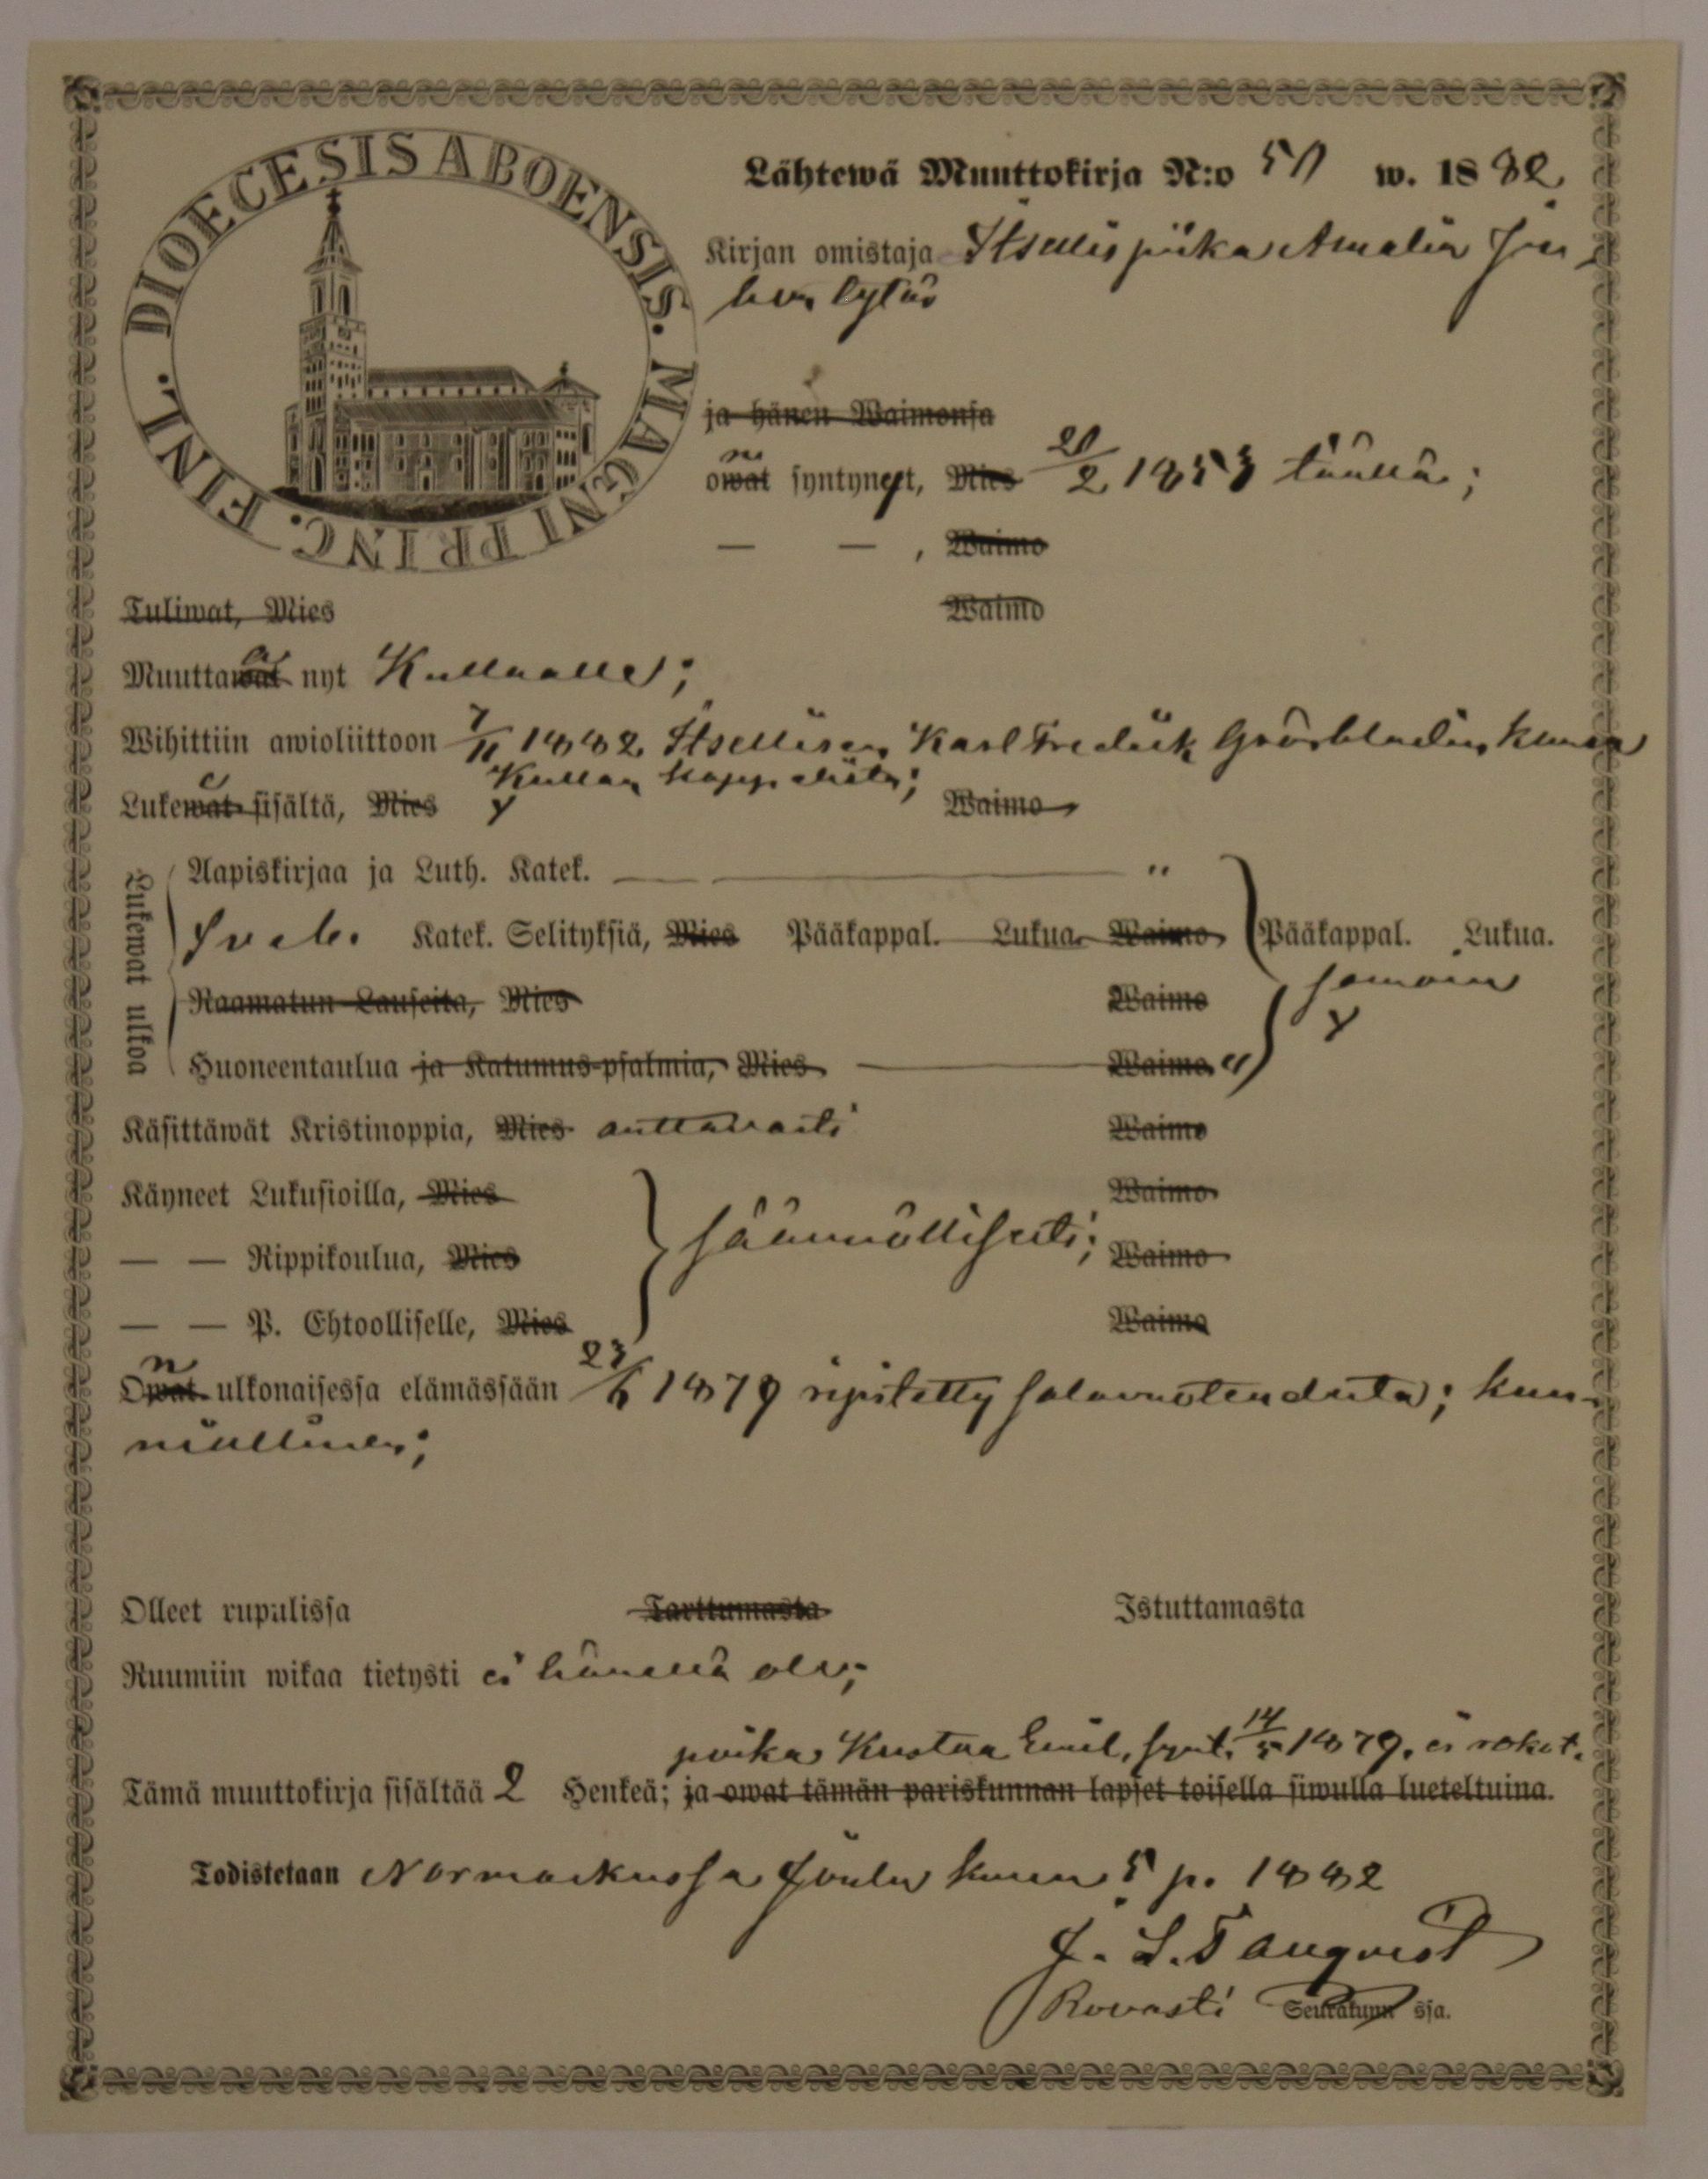 DIOECESIS ABOENSIS. MAGNI PRINC. FINL.
Lähtewä Muuttokirja N:o 50 w. 1882
Kirjan omistaja Itsellis piika Amalia Ju-
han tytär
ja hänen Waimonsa
n
owat syntyneet, Mies 20/2 1853 täällä;
— — , Waimo
Tuliwat, Mies Waimo
Muuttawat nyt Kullaalle;
Wihittiin awioliittoon 7/11 1882 Itsellisen Karl Fredrik Grönbladin kanssa
Kullan kappelista;
Lukewat sisältä, Mies Y Waimo
Lukewat ulkoa
Aapiskirjaa ja Luth. Katek. — "
Sveb. Katek. Selityksiä, Mies Pääkappal. Lukua. Waimo, Pääkappal. Lukua.
Raamatun Lauseita, Mies Waimo samoin
Y
Huoneentaulua ja Katumus-psalmia, Mies Waimo "
Käsittäwät Kristinoppia, Mies auttavasti Waimo
Käyneet Lukusioilla, Mies Waimo
säännöllisesti;
— — Rippikoulua, Mies Waimo
— — P. Ehtoolliselle, Mies Waimo
n
Owat ulkonaisessa elämässään 23/6 1879 ripitetty salavuoteudesta; kun-
niallinen;
Olleet rupulissa Tarttumasta Istuttamasta
Ruumiin wikaa tietysti ei hänellä ole;
poika Kustaa Emil, synt. 14/5 1879. ei rokot.
Tämä muuttokirja sisältää 2 Henkeä; ja owat tämän pariskunnan lapset toisella siwulla lueteltuina.
Todistetaan Normarkussa Joulu kuun 5 p. 1882
J. L. Tanqvist
Rovasti Seurakunn ssa.